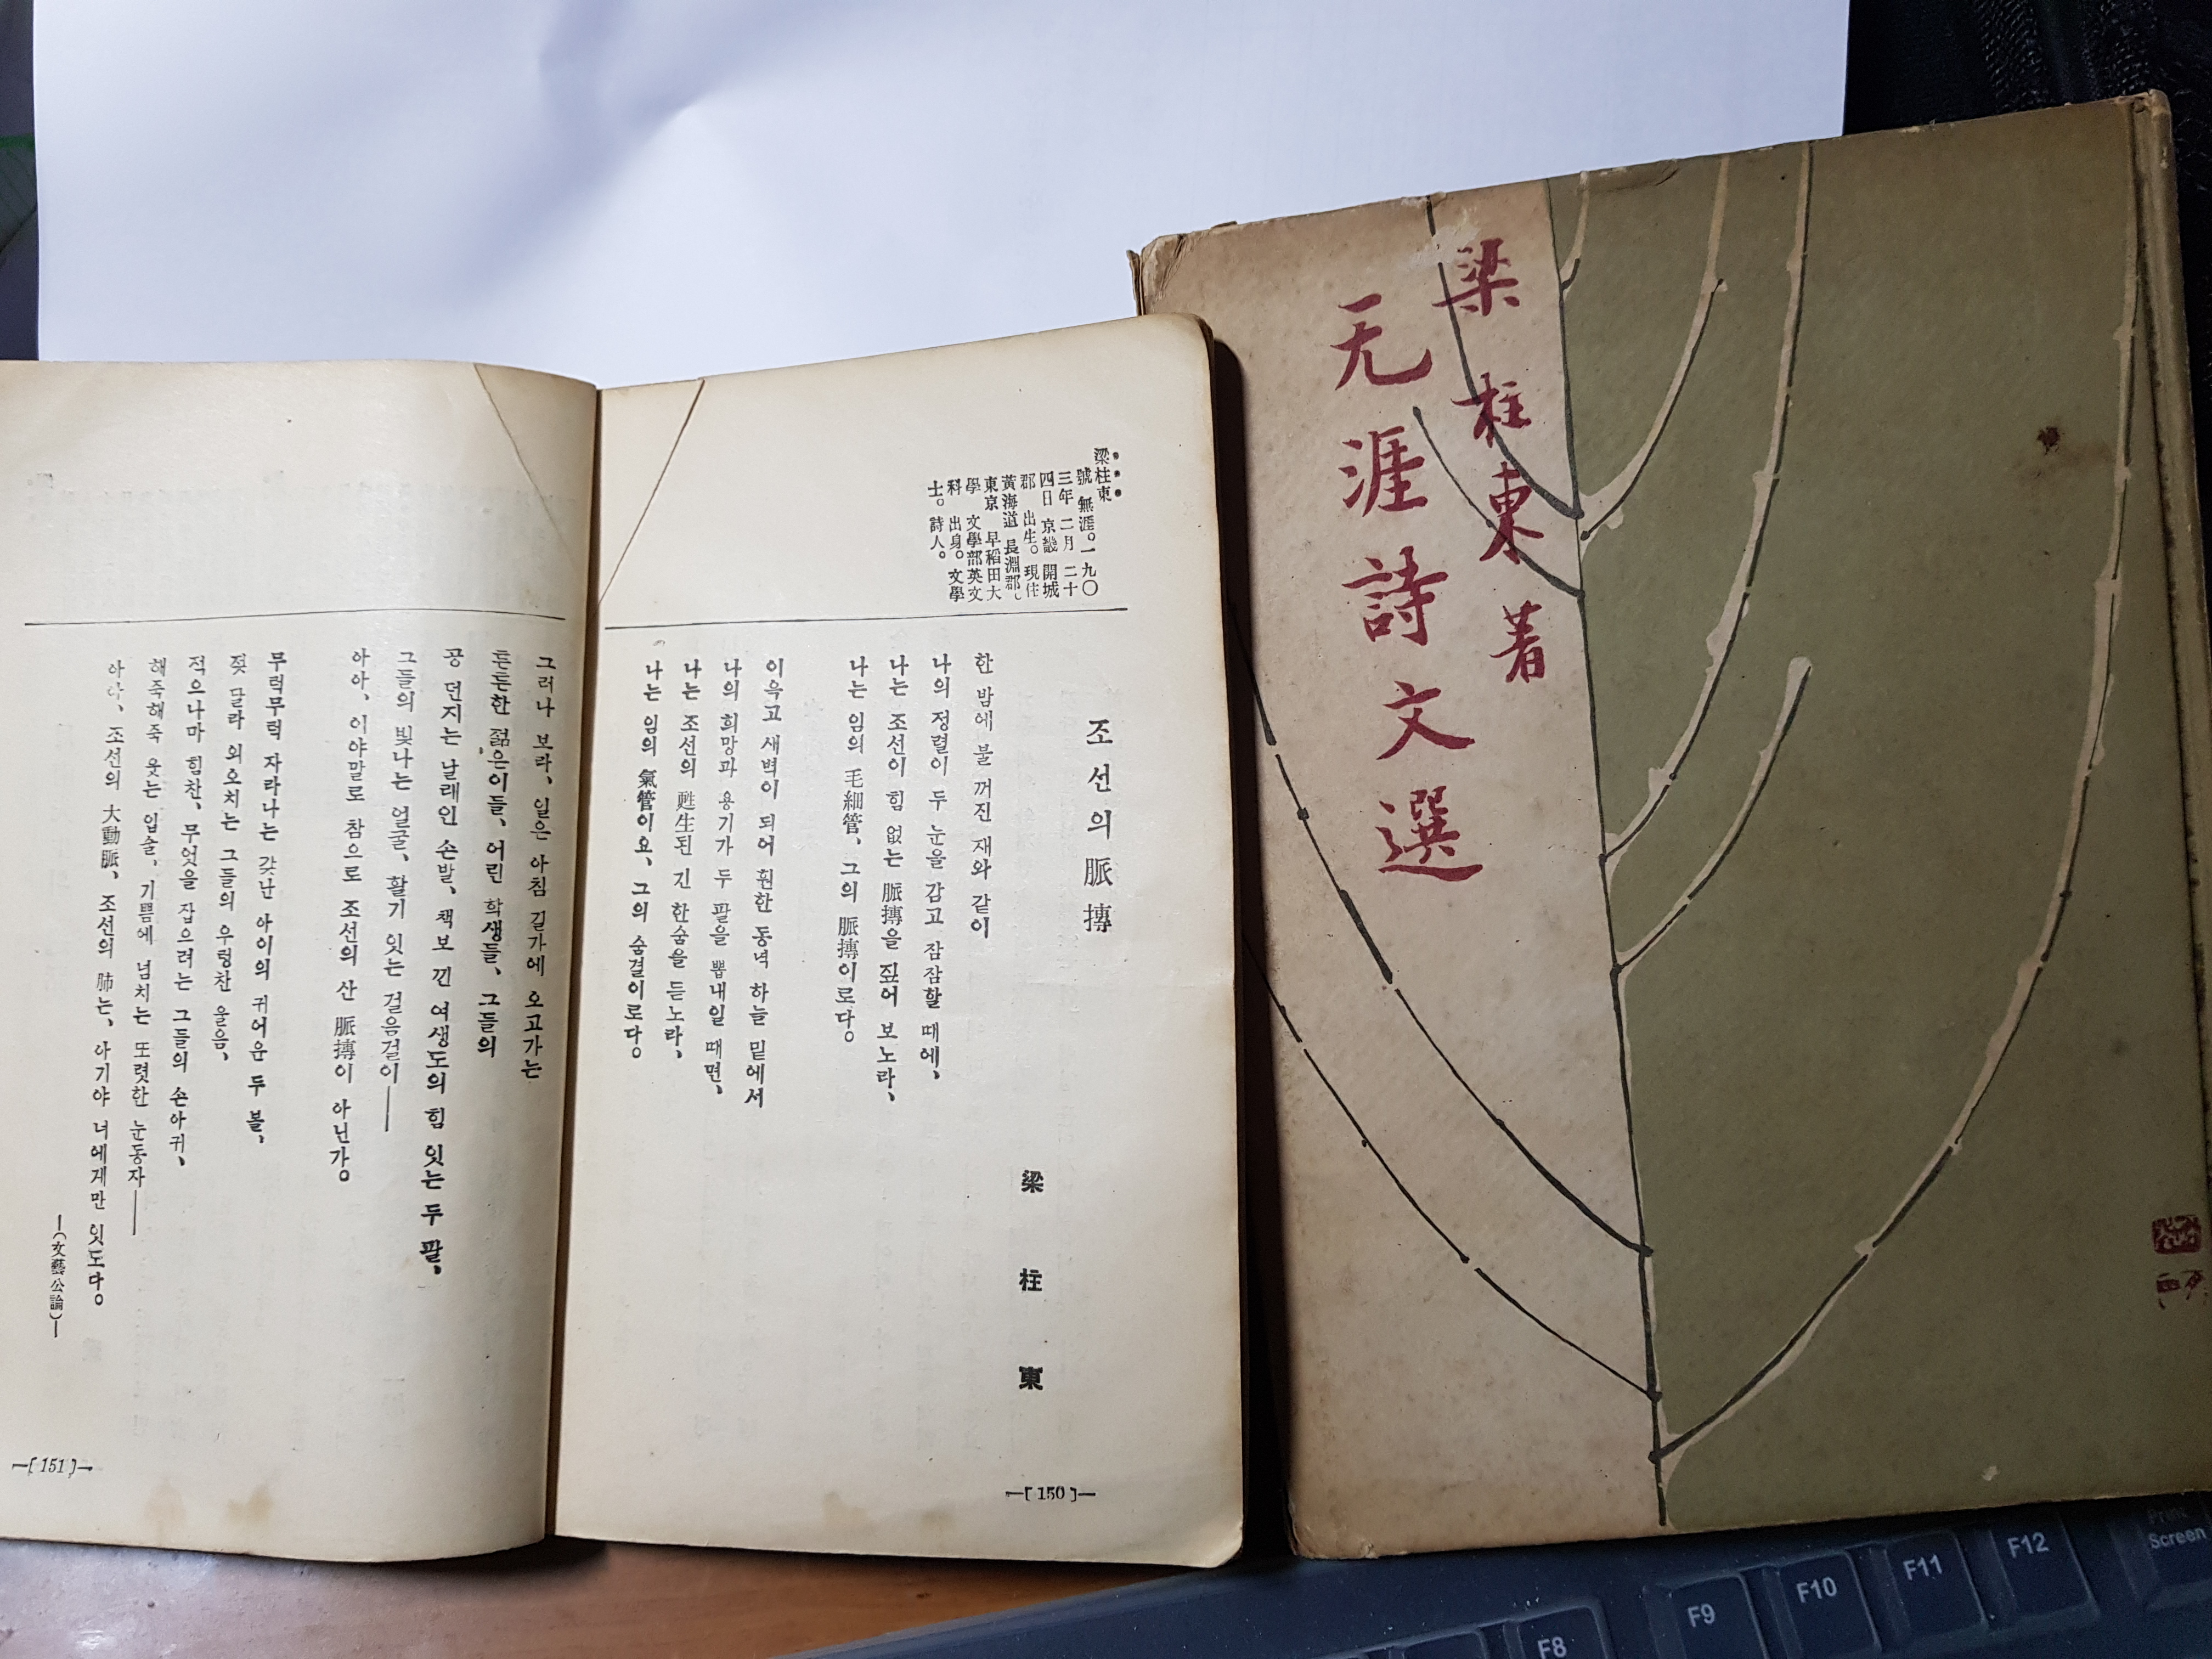 梁柱東 著
无涯詩文選
梁柱東
號 無涯。一九〇
三年 二月 二十
四日 京畿 開城
郡 出生。現住
黃海道 長淵郡。
東京 早稻田大
學 文學部英文
科 出身。文學
士。詩人。
조선의 脈搏
梁柱東
한 밤에 불 꺼진 재와 같이
나의 정렬이 두 눈을 감고 잠잠할 때에,
나는 조선이 힘 없는 脈搏을 짚어 보노라,
나는 임의 毛細管, 그의 脈搏이로다。
이윽고 새벽이 되어 훤한 동녁 하늘 밑에서
나의 희망과 용기가 두 팔을 뽑내일 때면,
나는 조선의 甦生된 긴 한숨을 듣노라,
나는 임의 氣管이요, 그의 숨결이로다。
—[ 150 ]—
그러나 보라, 일은 아침 길가에 오고가는
튼튼한 젊은이들, 어린 학생들, 그들의
공 던지는 날래인 손발, 책보 낀 여생도의 힘 잇는 두 팔,
그들의 빛나는 얼굴, 활기 잇는 걸음걸이——
아아, 이야말로 참으로 조선의 산 脈搏이 아닌가。
무럭무럭 자라나는 갖난 아이의 귀어운 두 볼,
젖 달라 외오치는 그들의 우렁찬 울음,
적으나마 힘찬, 무엇을 잡으려는 그들의 손아귀,
해죽해죽 웃는 입술, 기쁨에 넘치는 또렷한 눈동자——
아아, 조선의 大動脈, 조선의 肺는, 아기야 너에게만 잇도다。
—(文藝公論)—
—[ 151 ]—
F8
F9
F10
F11
F12
Print
Screen